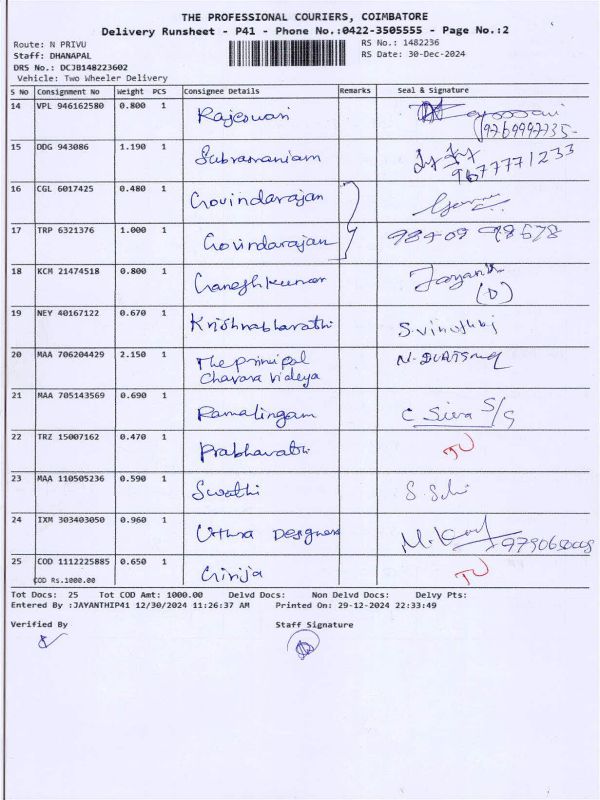 THE PROFESSIONAL COURIERS, COIMBATORE
Delivery Runsheet - P41 - Phone No.:0422-3505555 - Page No.:2
Route: N PRIVU
RS No.: 1482236
Staff: DHANAPAL
RS Date: 30-Dec-2024
DRS No.: DCJB148223602
Vehicle: Two Wheeler Delivery
S No Consignment No Weight PCS Consignee Details Remarks Seal & Signature
14 VPL 946162580 0.800 1 Rajeswari
9769997735-
15 DDG 943086 1.190 1 Subramaniam
9677771233
16 CGL 6017425 0.480 1 Govindarajan
17 TRP 6321376 1.000 1 Govindarajan
18 KCM 21474518 0.800 1 Ganeshkumar Jayanthi
(D)
19 NEY 40167122 0.670 1 Krishnabharathi
20 MAA 706204429 2.150 1 The prinipal
chavara videya
21 MAA 705143569 0.690 1 Ramalingam C Siva S/S
22 TRZ 15007162 0.470 1 Prabhavathi
23 MAA 110505236 0.590 1 Swathi
24 IXM 303403050 0.960 1 Uthra Designers
25 COD 1112225885 0.650 1 Girija
COD Rs.1000.00
Tot Docs: 25 Tot COD Amt: 1000.00 Delvd Docs: Non Delvd Docs: Delvy Pts:
Entered By :JAYANTHIP41 12/30/2024 11:26:37 AM Printed On: 29-12-2024 22:33:49
Verified By Staff Signature